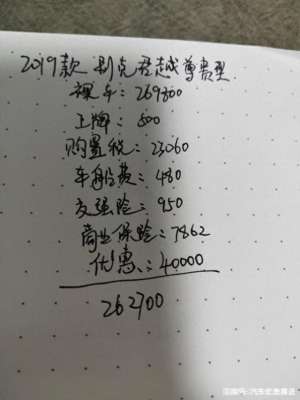 2019款 别克君越尊贵型
裸车:269800
上牌:500
购置税:23060
车船费:480
交强险:950
商业保险:7862
优惠:40000
262700